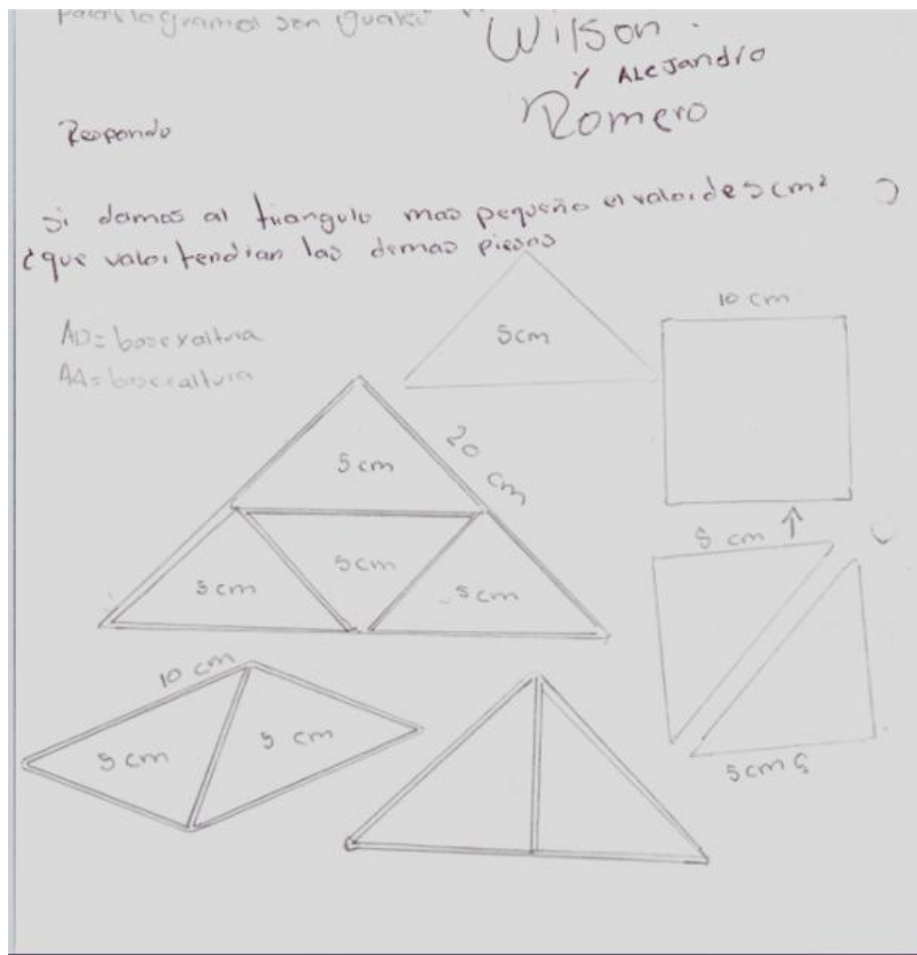 son iguales
Wilson.
Y ALeJandro
Romero
Respondo
si damos al triangulo mas pequeño el valor de 5 cm²
¿que valor tendrian las demas piesas
5cm
10 cm
AD= base x altura
AA= base x altura
20 cm
5 cm
5 cm
5 cm
5 cm
5 cm
10 cm
5 cm
5 cm
5cm